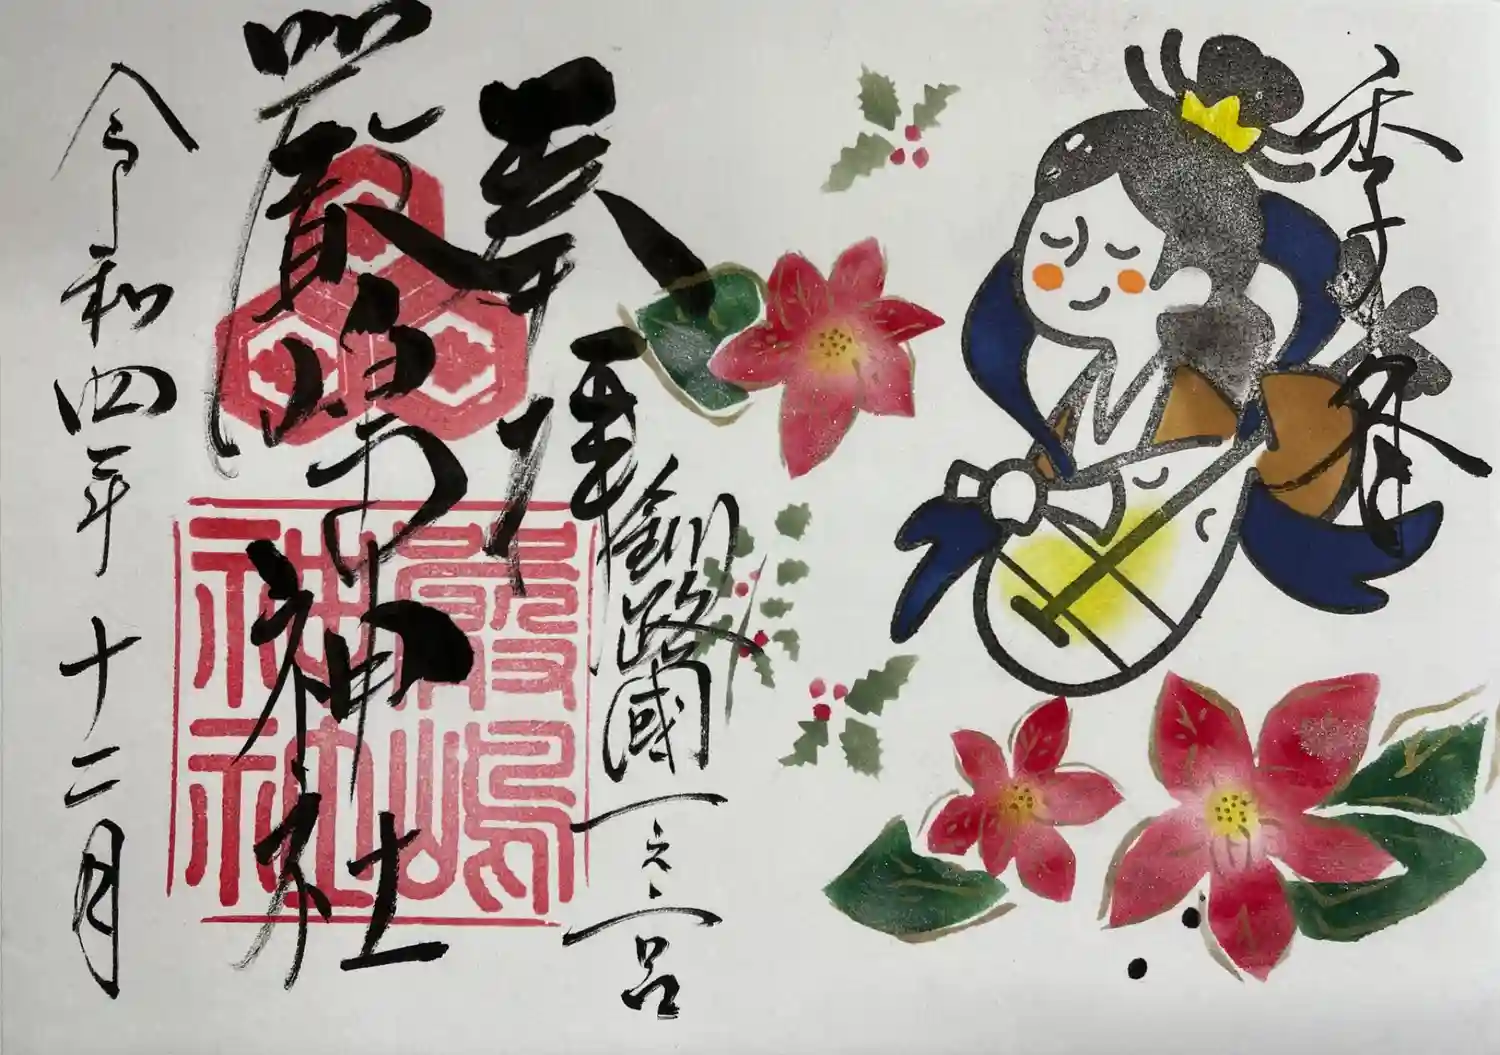 季冬
奉拝
釧路國一之宮
嚴嶋神社
嚴嶋
神社
令和四年十二月